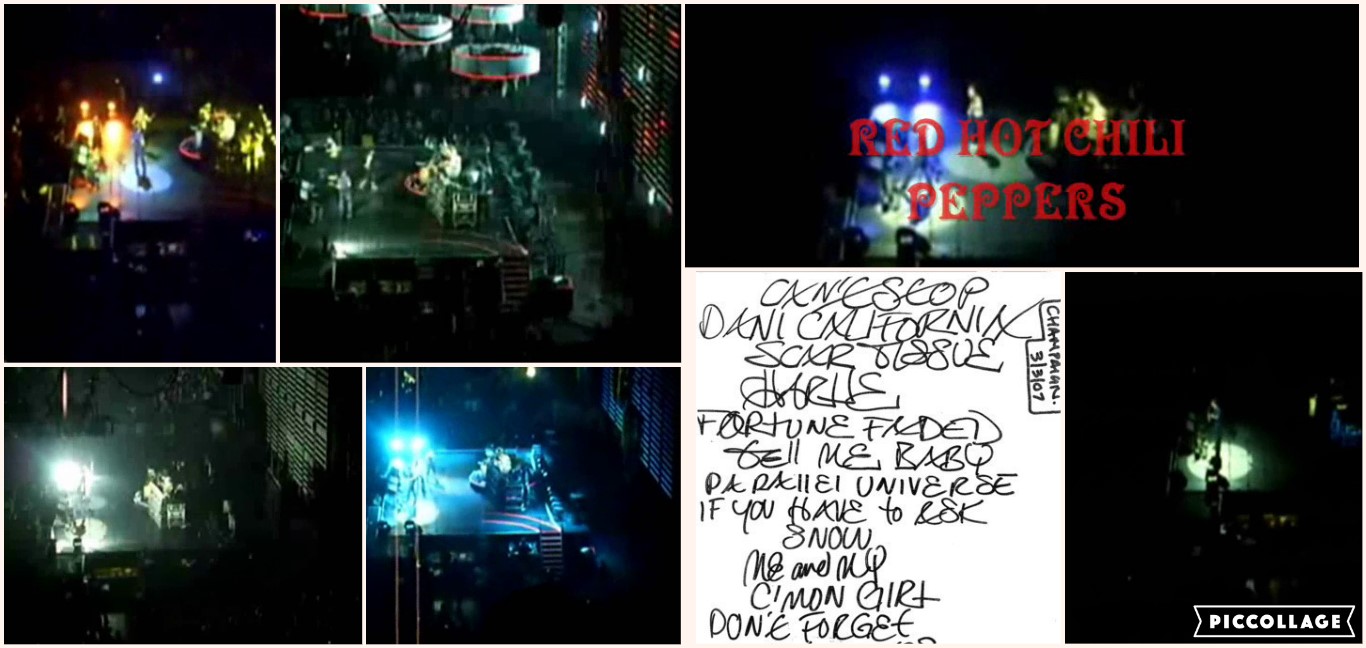 RED HOT CHILI
PEPPERS
CAN'T STOP
DANI CALIFORNIA
SCAR TISSUE
CHARLIE
FORTUNE FADED
TELL ME BABY
PARALLEL UNIVERSE
IF YOU HAVE TO ASK
SNOW
ME and MY
C'MON GIRL
DON'T FORGET
CHAMPAIGN.
3/3/07
PICCOLLAGE